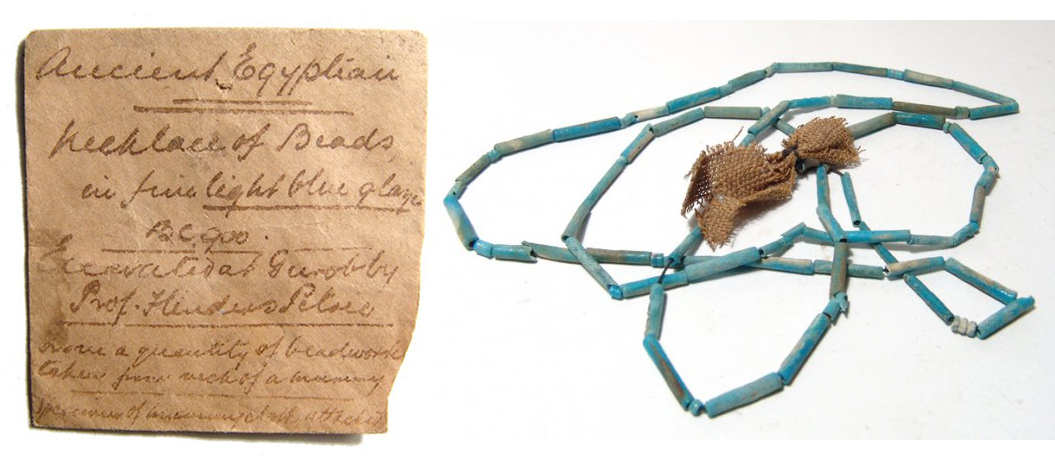 Ancient Egyptian
Necklace of Beads
in fine light blue glaze
BC 900.
Excavated at Gurob by
Prof. Flinders Petrie
From a quantity of beadwork
taken from neck of a mummy
Specimen of mummy cloth attached